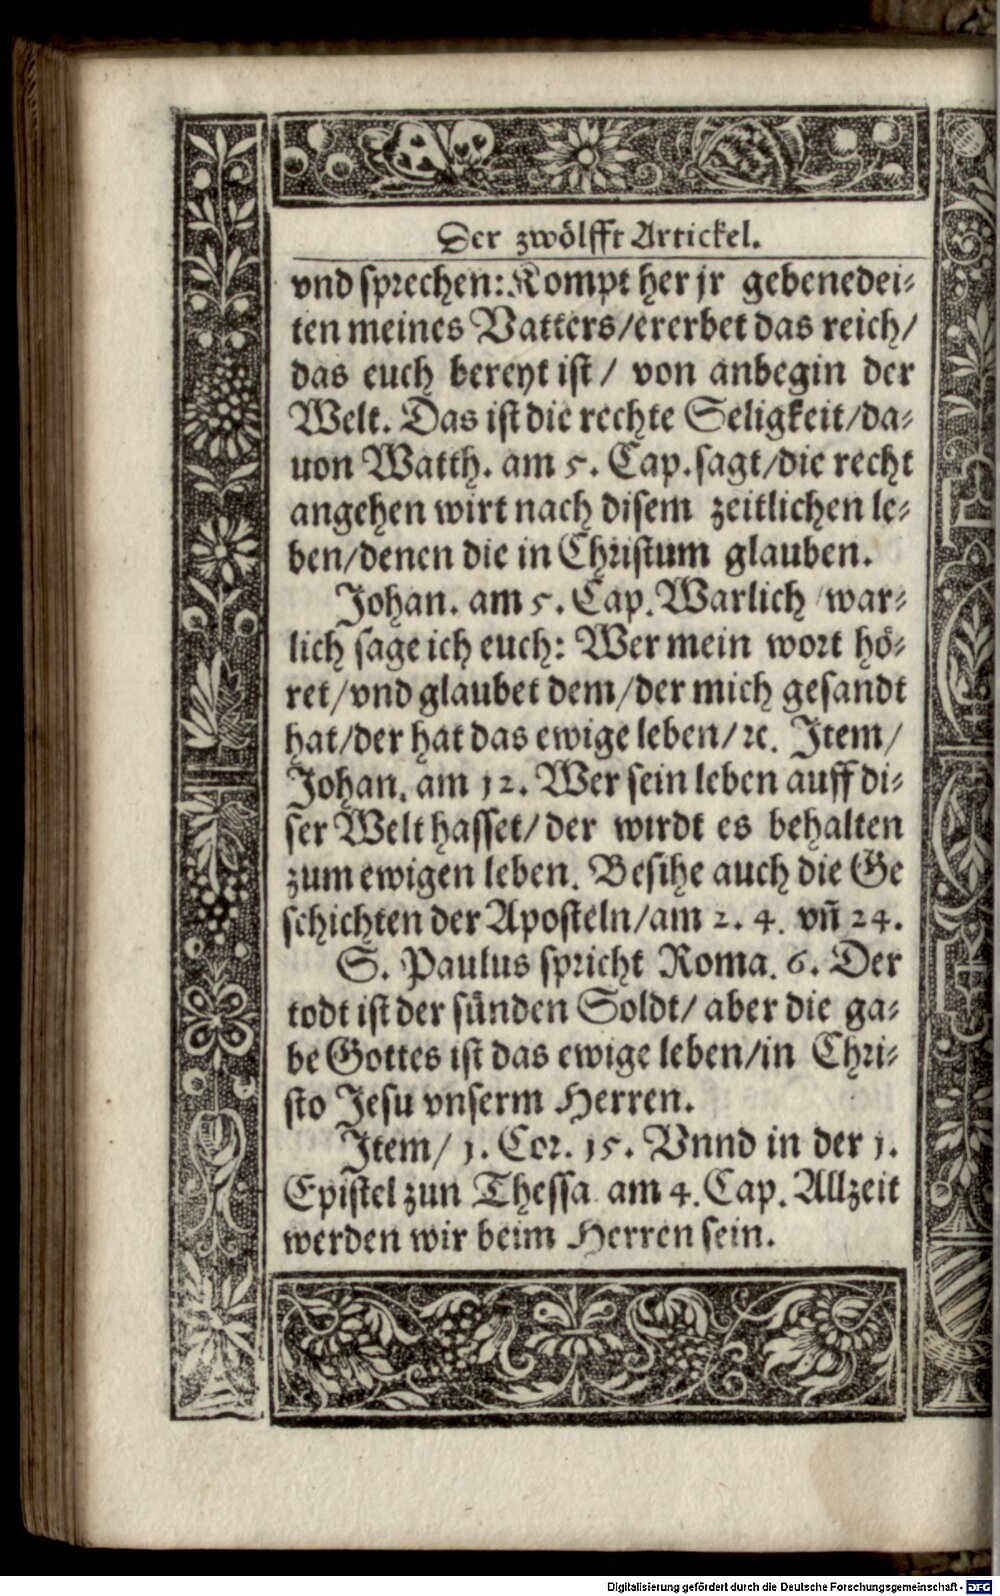 Der zwölfft Artickel.
vnd sprechen: Kompt her jr gebenedei⸗
ten meines Vatters/ererbet das reich/
das euch bereyt ist/ von anbegin der
Welt. Das ist die rechte Seligkeit/da⸗
uon Matth. am 5. Cap. sagt/die recht
angehen wirt nach disem zeitlichen le⸗
ben/denen die in Christum glauben.
Johan. am 5. Cap. Warlich/war⸗
lich sage ich euch: Wer mein wort hö⸗
ret/vnd glaubet dem/der mich gesandt
hat/der hat das ewige leben/ꝛc. Item/
Johan. am 12. Wer sein leben auff di⸗
ser Welt hasset/ der wirdt es behalten
zum ewigen leben. Besihe auch die Ge
schichten der Aposteln/am 2. 4. vñ 24.
S. Paulus spricht Roma. 6. Der
todt ist der sünden Soldt/ aber die ga⸗
be Gottes ist das ewige leben/in Chri⸗
sto Jesu vnserm Herren.
Item/ 1. Cor. 15. Vnnd in der 1.
Epistel zun Thessa. am 4. Cap. Allzeit
werden wir beim Herren sein.
Digitalisierung gefördert durch die Deutsche Forschungsgemeinschaft - DFG